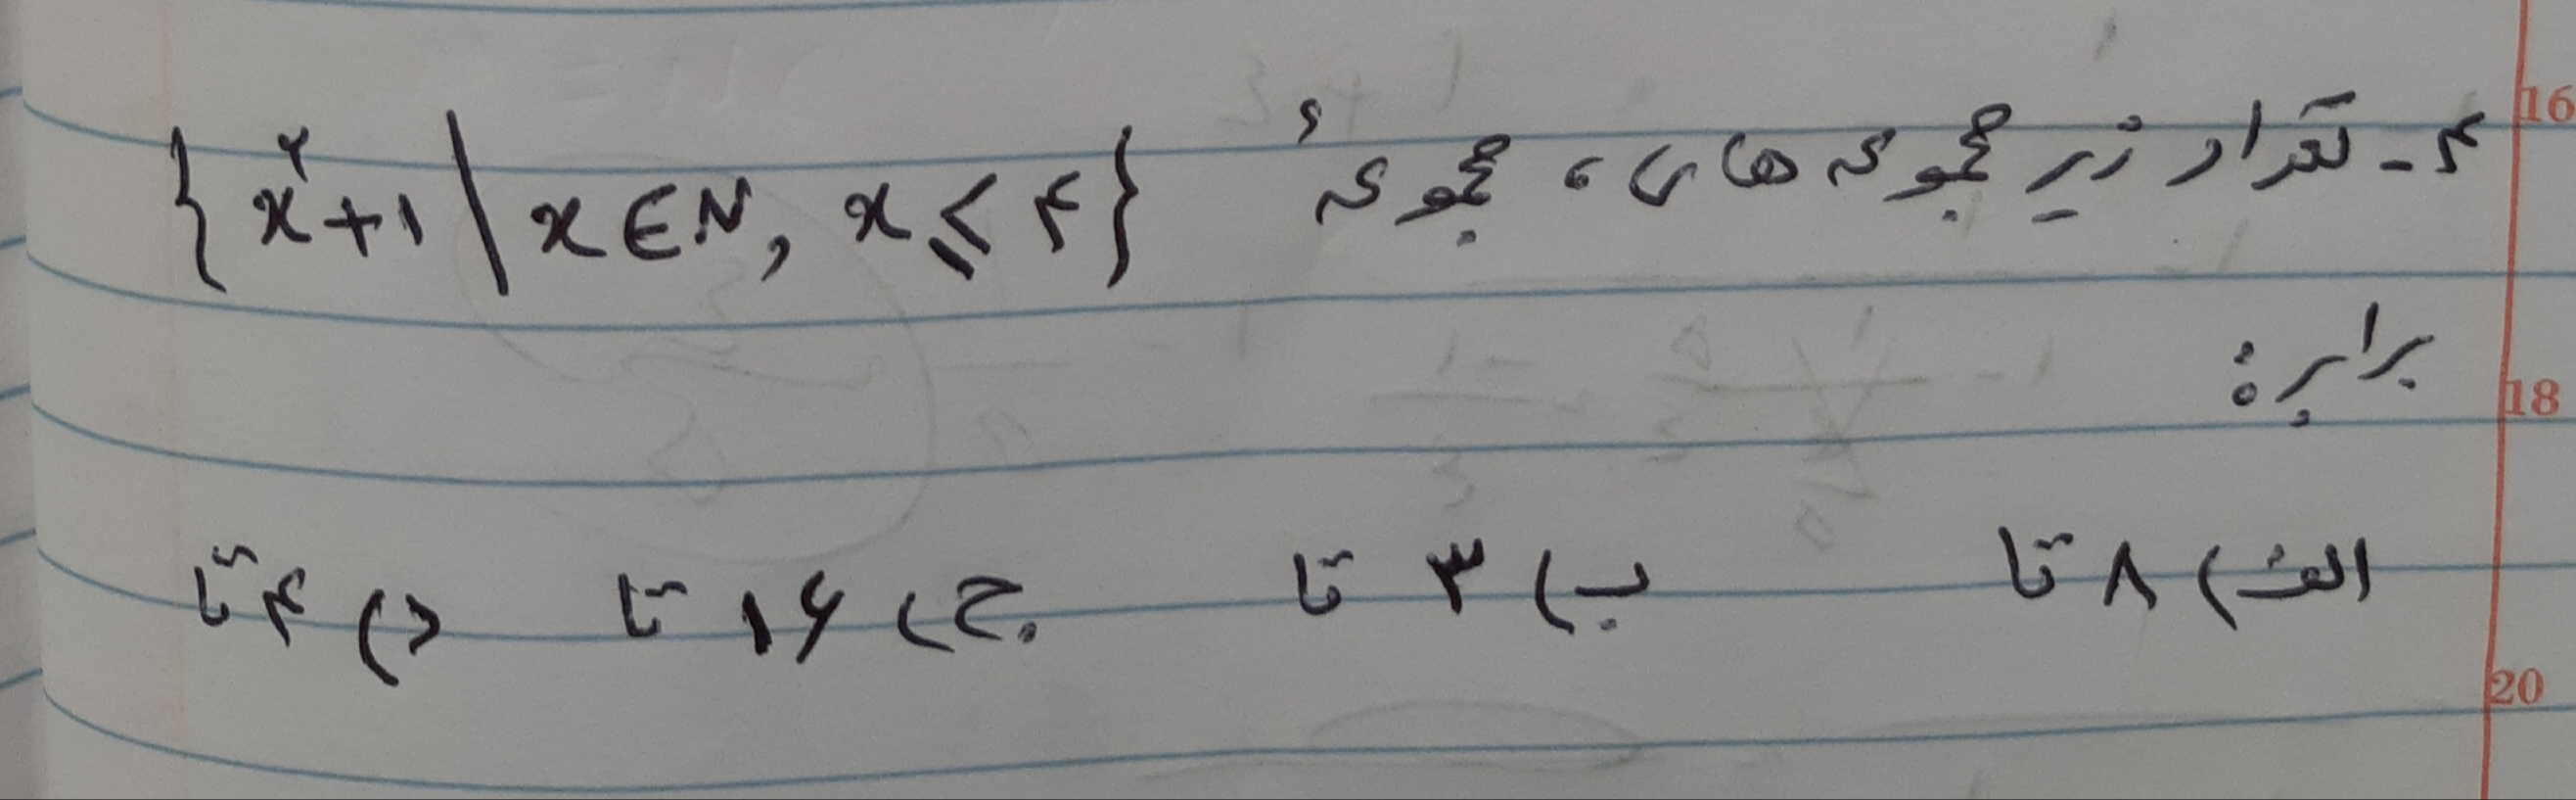 ۴- تعداد زیر مجموعه های، مجموعهٔ {x²+۱ | x∈N, x≤۴}
برابر:
الف) ۸ تا ب) ۳ تا ج) ۱۶ تا د) ۴ تا
16
18
20